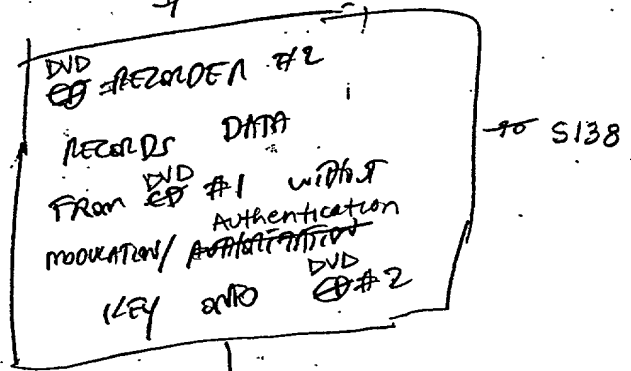 DVD
CD RECORDER #2
RECORDS DATA
DVD
FROM CD #1 WITHOUT
Authentication
MODULATION/ AUTHENTICATION
DVD
KEY ONTO CD #2
S138